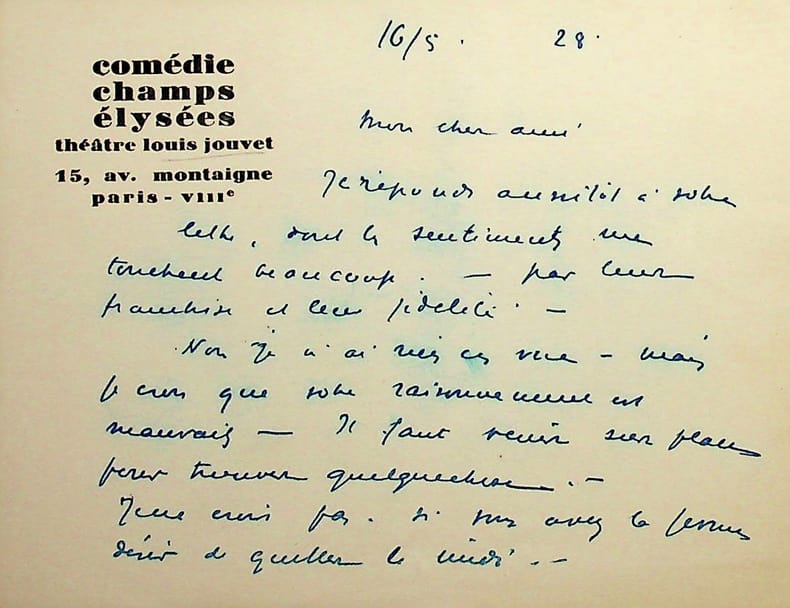 comédie
champs
élysées
théâtre louis jouvet
15, av. montaigne
paris - VIIIe
16/5. 28.
Mon cher ami
Je réponds aussitôt à votre
lettre, dont les sentiments me
touchent beaucoup. — par leur
franchise et leur fidélité. —
Non je n'ai rien en vue — mais
je crois que votre raisonnement est
mauvais — Il faut venir sur place
pour trouver quelquechose. —
Je ne crois pas. si vous avez le
désir de quitter le midi. —